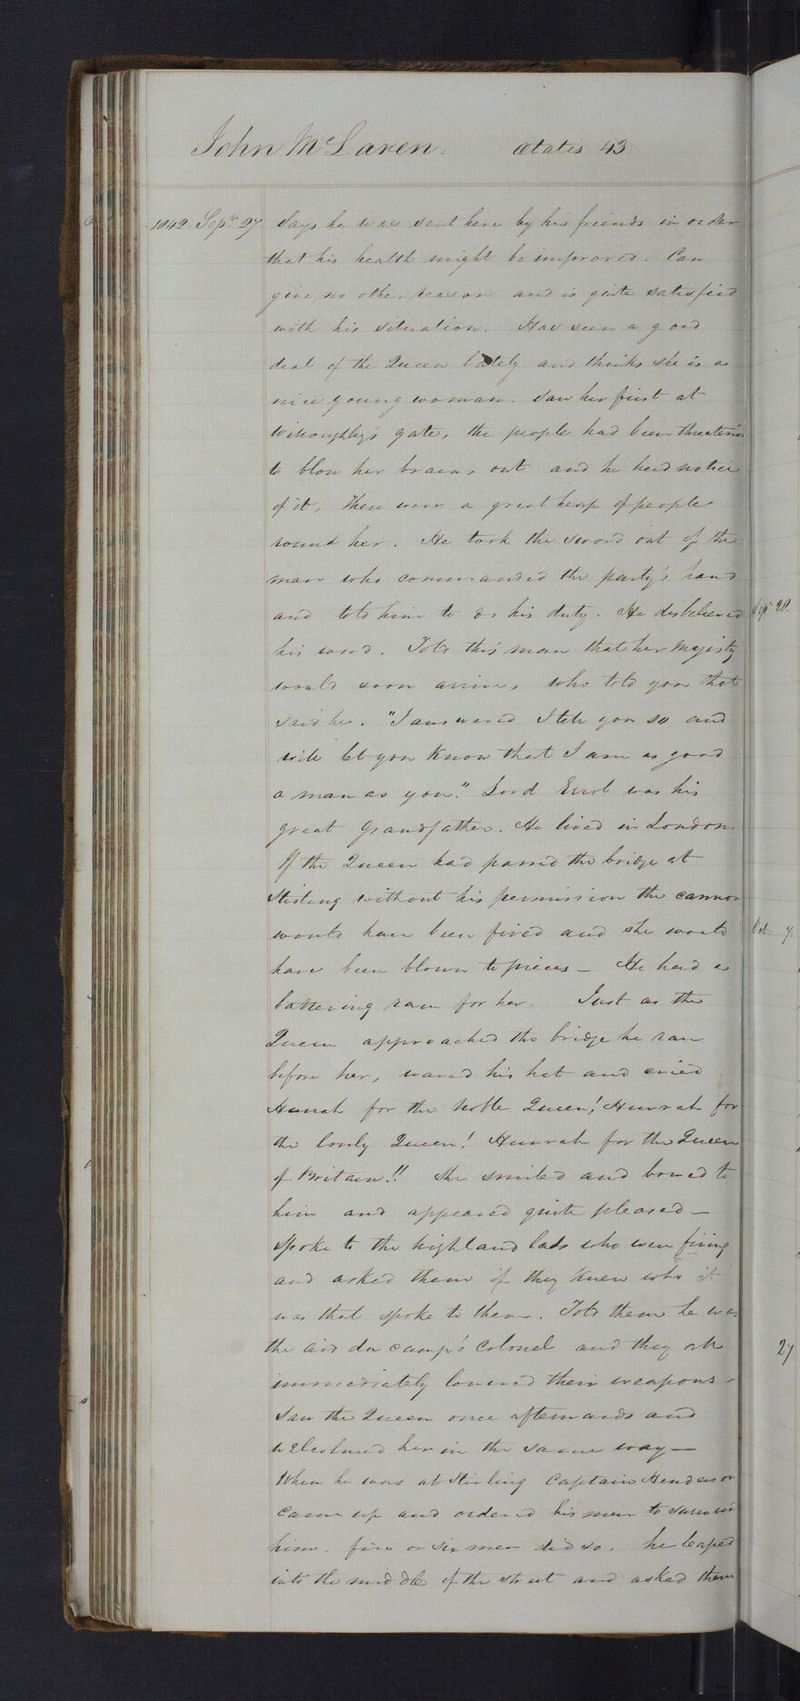 John McLaren. ætatis 43
1842. Sepr. 27 Says he was sent here by his friends in order
that his health might be improved. Can
give no other reason and is quite satisfied
with his situation. Has seen a good
deal of the Queen lately and thinks she is a
nice young woman. Saw her first at
Willoughby's gate, the people had been threatening
to blow her brains out and he had notice
of it, there were a great heap of people
round her. He took the sword out of the
man who commanded the party's hand
and told him to do his duty. He disbelieved
his word. Told this man that her Majesty
would soon arrive, who told you that
said he. "I answered I tell you so and
will let you know that I am as good
a man as you." Lord Errol was his
great Grandfather. He lived in London.
If the Queen had passed the bridge at
Stirling without his permission the cannon
would have been fired and she would
have been blown to pieces — He had a
battering ram for her. Just as the
Queen approached the bridge he ran
before her, waved his hat and cried
Hurrah for the Noble Queen! Hurrah for
the lovely Queen! Hurrah for the Queen
of Britain!! She smiled and bowed to
him and appeared quite pleased —
Spoke to the highland lads who were firing
and asked them if they knew who it
was that spoke to them. Told them he was
the aid du camp's Colonel and they all
immediately lowered their weapons —
Saw the Queen once afterwards and
welcomed her in the same way —
When he was at Stirling Captain Henderson
came up and ordered his men to surround
him. five or six men did so, he leaped
into the middle of the street and asked them
Sep 28.
Oct. 7.
27